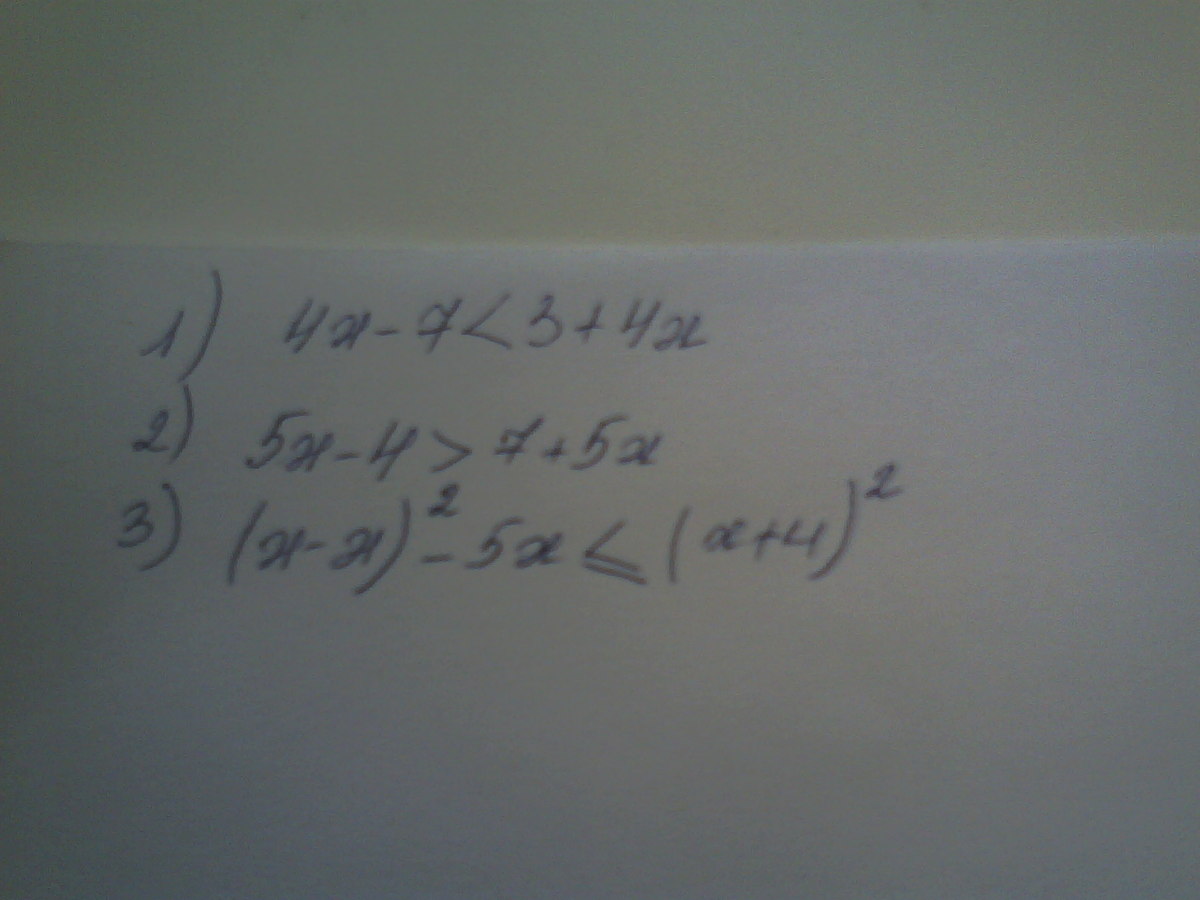 1) 4x-7<3+4x
2) 5x-4>7+5x
3) (x-x)²-5x≤(x+4)²